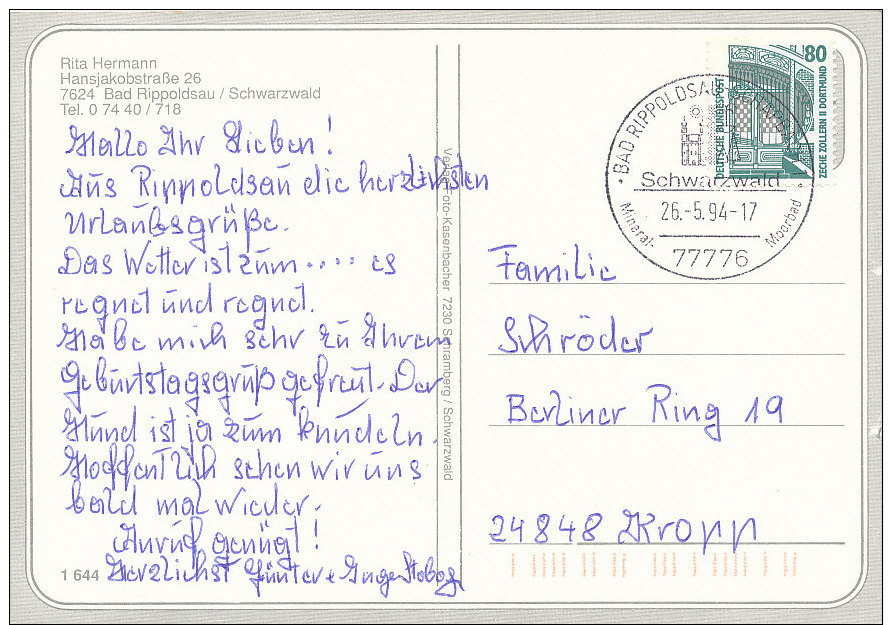 Rita Hermann
Hansjakobstraße 26
7624 Bad Rippoldsau / Schwarzwald
Tel. 0 74 40 / 718
Hallo Ihr Lieben!
Aus Rippoldsau die herzlichsten
Urlaubsgrüße.
Das Wetter ist zum .... es
regnet und regnet.
Habe mich sehr zu Ihrem
Geburtstagsgruß gefreut. Der
Hund ist ja zum knudeln.
Hoffentlich sehen wir uns
bald mal wieder.
Anruf genügt!
Herzlichst Günter + Inge
1 644
Verlag Foto-Kasenbacher 7230 Schramberg / Schwarzwald
80
DEUTSCHE BUNDESPOST
ZECHE ZOLLERN II DORTMUND
BAD RIPPOLDSAU
Schwarzwald
26.-5.94-17
Mineral- Moorbad
77776
Familie
Schröder
Berliner Ring 19
24848 Kropp